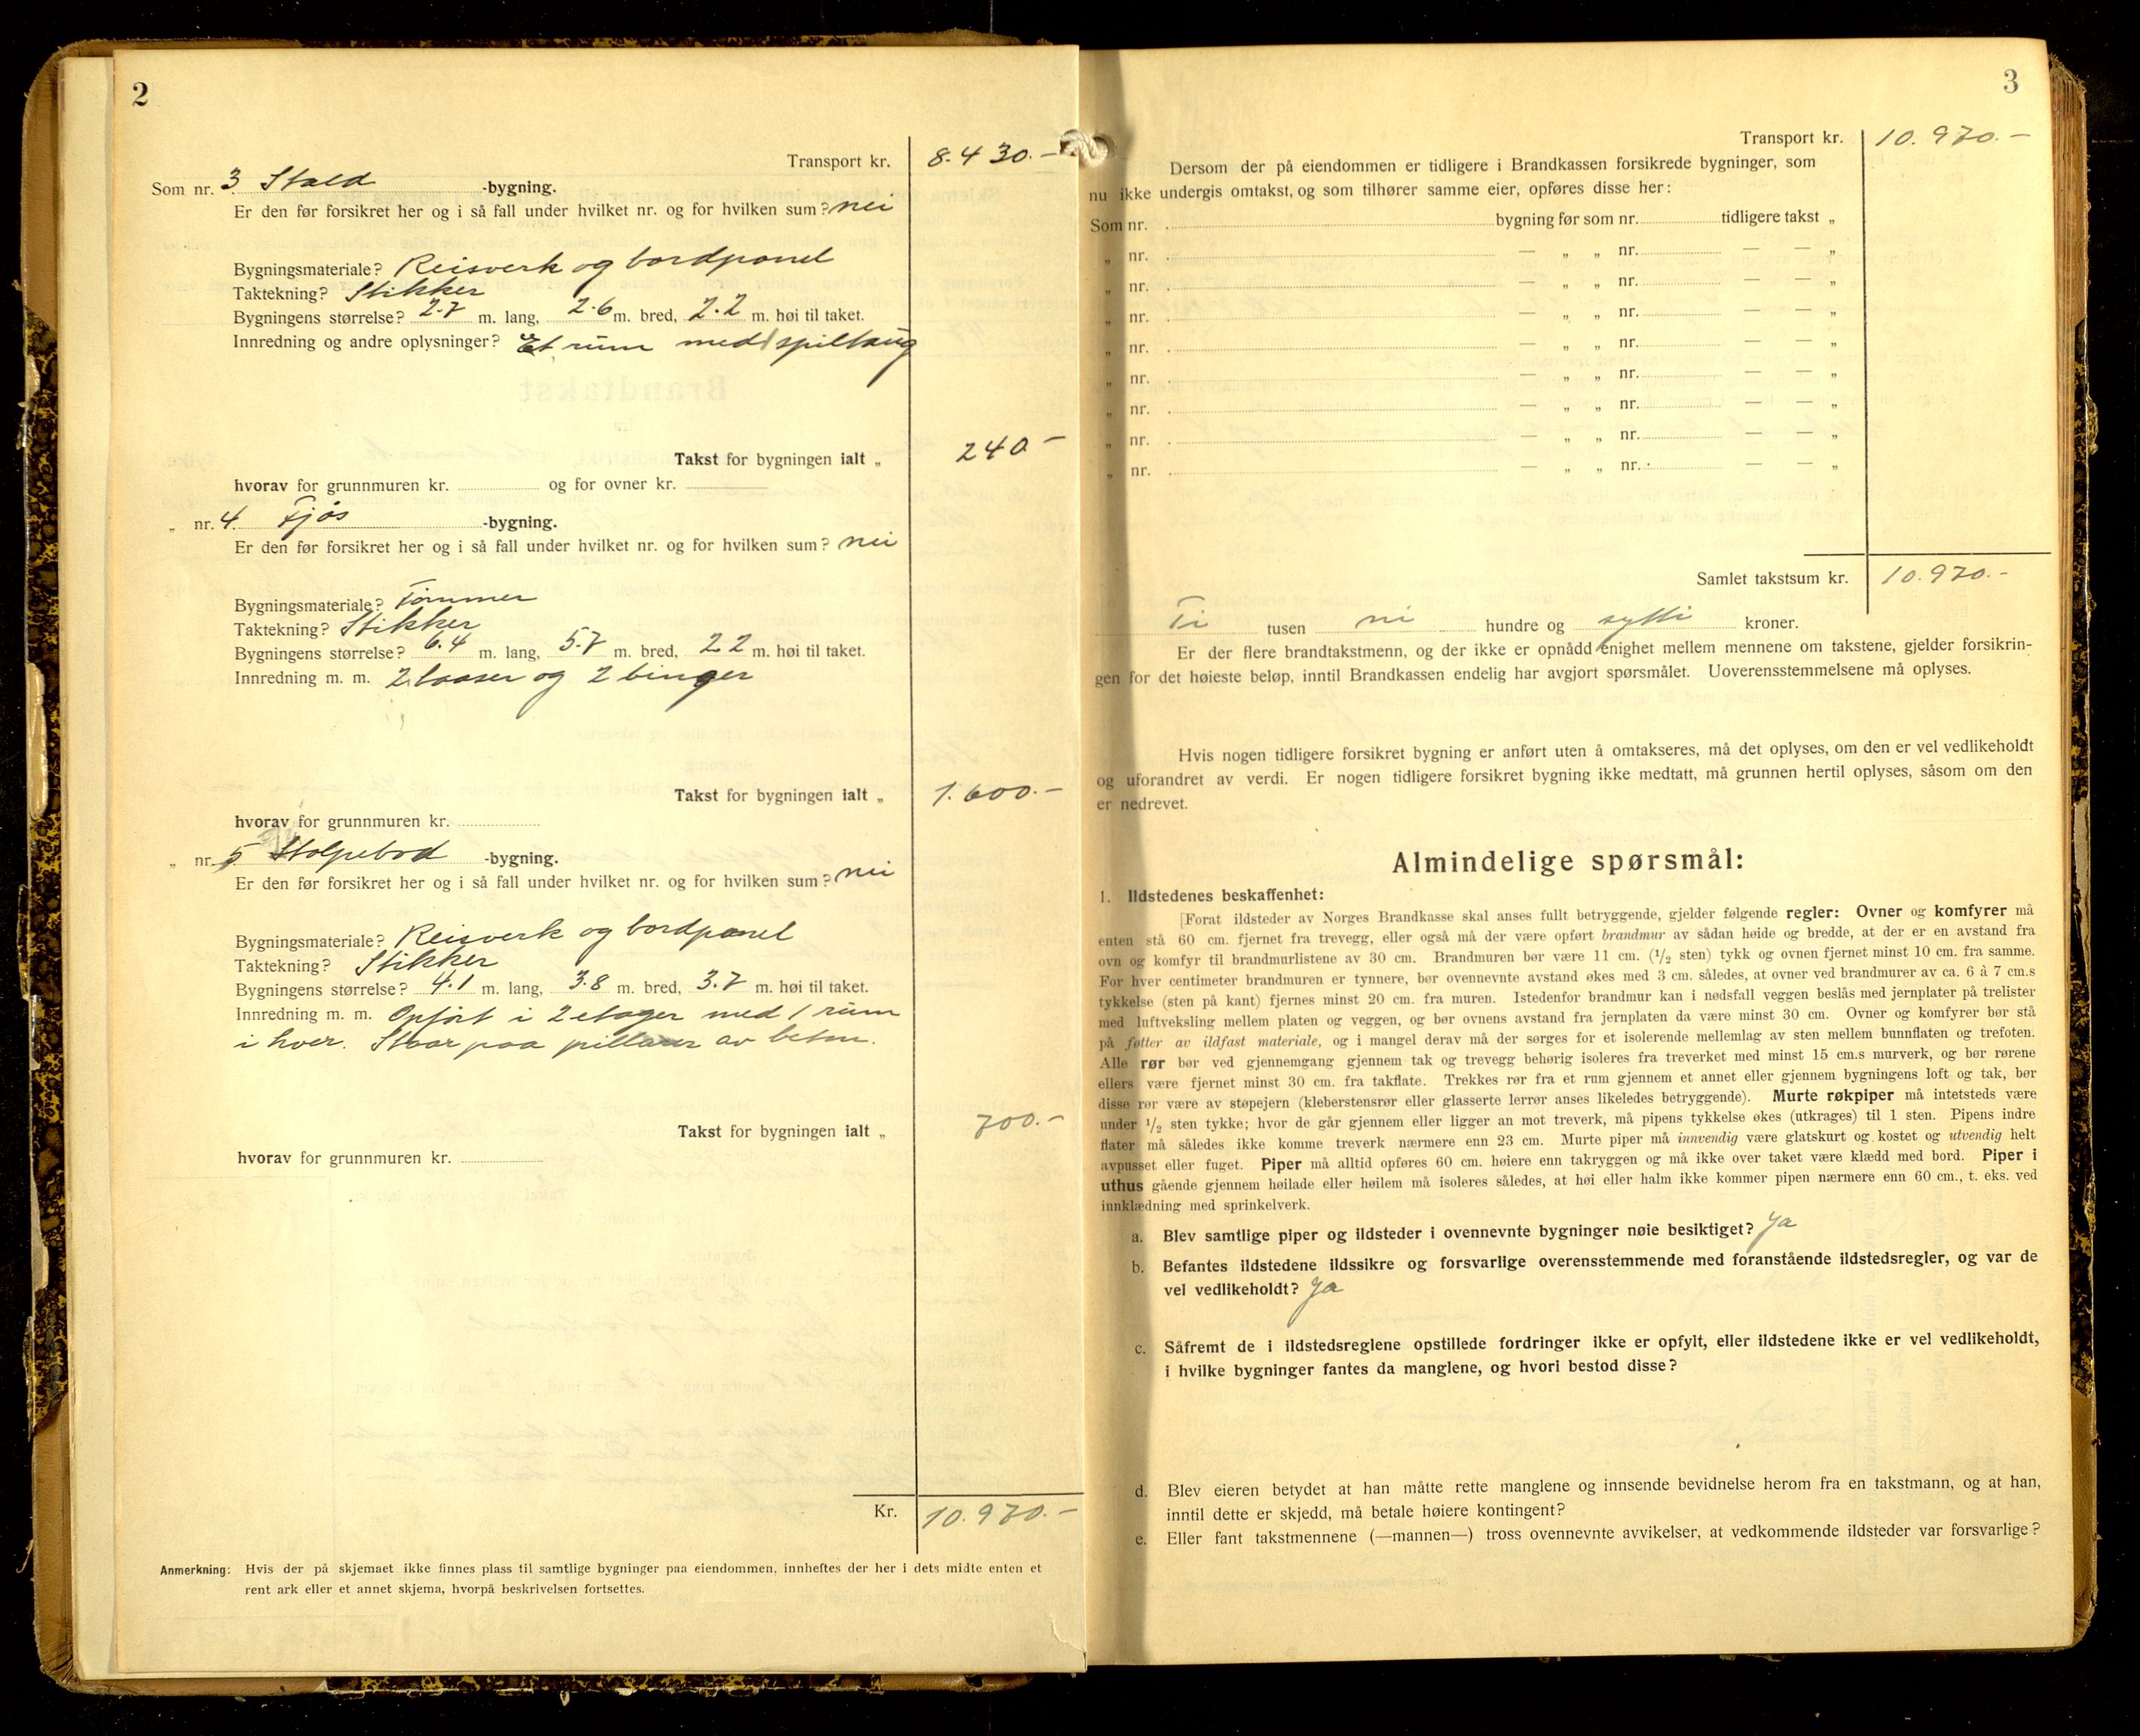 2
Transport kr. 8.430.-
Som nr. 3 Stald -bygning.
Er den før forsikret her og i så fall under hvilket nr. og for hvilken sum? nei
Bygningsmateriale? Reisverk og bordpanel
Taktekning? Stikker
Bygningens størrelse? 2.7 m. lang, 2.6 m. bred, 2.2 m. høi til taket.
Innredning og andre oplysninger? Et rum med 1 spiltaug
Takst for bygningen ialt „ 240-
hvorav for grunnmuren kr. og for ovner kr.
„ nr. 4 Fjøs -bygning.
Er den før forsikret her og i så fall under hvilket nr. og for hvilken sum? nei
Bygningsmateriale? Tømmer
Taktekning? Stikker
Bygningens størrelse? 6.4 m. lang, 5.7 m. bred, 2.2 m. høi til taket.
Innredning m. m. 2 baaser og 2 binger
Takst for bygningen ialt „ 1.600.-
hvorav for grunnmuren kr.
„ nr. 5 Stolpebod -bygning.
Er den før forsikret her og i så fall under hvilket nr. og for hvilken sum? nei
Bygningsmateriale? Reisverk og bordpanel
Taktekning? Stikker
Bygningens størrelse? 4.1 m. lang, 3.8 m. bred, 3.7 m. høi til taket.
Innredning m. m. Opført i 2 etager med 1 rum
i hver. Staar paa pillarer av beton.
Takst for bygningen ialt „ 700.-
hvorav for grunnmuren kr.
Kr. 10.970.-
Anmerkning: Hvis der på skjemaet ikke finnes plass til samtlige bygninger paa eiendommen, innheftes der her i dets midte enten et
rent ark eller et annet skjema, hvorpå beskrivelsen fortsettes.
3
Transport kr. 10.970.-
Dersom der på eiendommen er tidligere i Brandkassen forsikrede bygninger, som
nu ikke undergis omtakst, og som tilhører samme eier, opføres disse her:
Som nr. bygning før som nr. tidligere takst „
„ nr. — „ „ nr. — — „
„ nr. — „ „ nr. — — „
„ nr. — „ „ nr. — — „
„ nr. — „ „ nr. — — „
„ nr. — „ „ nr. — — „
„ nr. — „ „ nr. — — „
„ nr. — „ „ nr. — — „
„ nr. — „ „ nr. — — „
Samlet takstsum kr. 10.970.-
Ti tusen ni hundre og sytti kroner.
Er der flere brandtakstmenn, og der ikke er opnådd enighet mellem mennene om takstene, gjelder forsikrin-
gen for det høieste beløp, inntil Brandkassen endelig har avgjort spørsmålet. Uoverensstemmelsene må oplyses.
Hvis nogen tidligere forsikret bygning er anført uten å omtakseres, må det oplyses, om den er vel vedlikeholdt
og uforandret av verdi. Er nogen tidligere forsikret bygning ikke medtatt, må grunnen hertil oplyses, såsom om den
er nedrevet.
Almindelige spørsmål:
1. Ildstedenes beskaffenhet:
[Forat ildsteder av Norges Brandkasse skal anses fullt betryggende, gjelder følgende regler: Ovner og komfyrer må
enten stå 60 cm. fjernet fra trevegg, eller også må der være opført brandmur av sådan høide og bredde, at der er en avstand fra
ovn og komfyr til brandmurlistene av 30 cm. Brandmuren bør være 11 cm. (1/2 sten) tykk og ovnen fjernet minst 10 cm. fra samme.
For hver centimeter brandmuren er tynnere, bør ovennevnte avstand økes med 3 cm. således, at ovner ved brandmurer av ca. 6 à 7 cm.s
tykkelse (sten på kant) fjernes minst 20 cm. fra muren. Istedenfor brandmur kan i nødsfall veggen beslås med jernplater på trelister
med luftveksling mellem platen og veggen, og bør ovnens avstand fra jernplaten da være minst 30 cm. Ovner og komfyrer bør stå
på føtter av ildfast materiale, og i mangel derav må der sørges for et isolerende mellemlag av sten mellem bunnflaten og trefoten.
Alle rør bør ved gjennemgang gjennem tak og trevegg behørig isoleres fra treverket med minst 15 cm.s murverk, og bør rørene
ellers være fjernet minst 30 cm. fra takflate. Trekkes rør fra et rum gjennem et annet eller gjennem bygningens loft og tak, bør
disse rør være av støpejern (kleberstensrør eller glasserte lerrør anses likeledes betryggende). Murte røkpiper må intetsteds være
under 1/2 sten tykke; hvor de går gjennem eller ligger an mot treverk, må pipens tykkelse økes (utkrages) til 1 sten. Pipens indre
flater må således ikke komme treverk nærmere enn 23 cm. Murte piper må innvendig være glatskurt og kostet og utvendig helt
avpusset eller fuget. Piper må alltid opføres 60 cm. høiere enn takryggen og må ikke over taket være klædd med bord. Piper i
uthus gående gjennem høilade eller høilem må isoleres således, at høi eller halm ikke kommer pipen nærmere enn 60 cm., t. eks. ved
innklædning med sprinkelverk.
a. Blev samtlige piper og ildsteder i ovennevnte bygninger nøie besiktiget? Ja
b. Befantes ildstedene ildssikre og forsvarlige overensstemmende med foranstående ildstedsregler, og var de
vel vedlikeholdt? Ja
c. Såfremt de i ildstedsreglene opstillede fordringer ikke er opfylt, eller ildstedene ikke er vel vedlikeholdt,
i hvilke bygninger fantes da manglene, og hvori bestod disse?
d. Blev eieren betydet at han måtte rette manglene og innsende bevidnelse herom fra en takstmann, og at han,
inntil dette er skjedd, må betale høiere kontingent?
e. Eller fant takstmennene (—mannen—) tross ovennevnte avvikelser, at vedkommende ildsteder var forsvarlige?